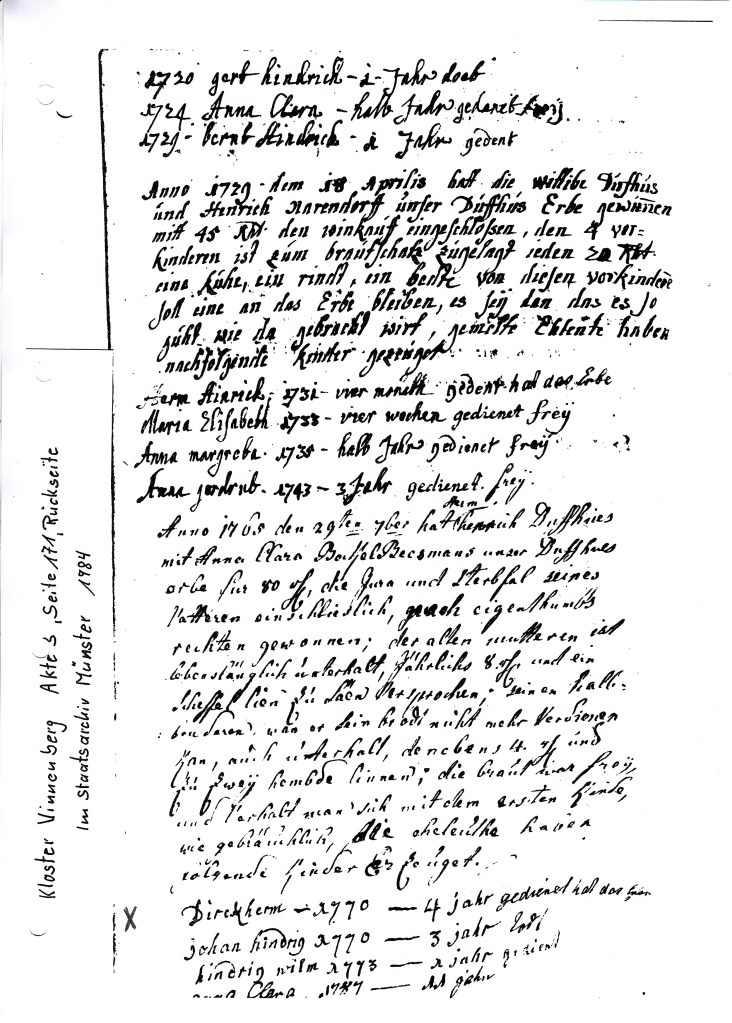 1720 gert hindrich - 1 - Jahr doet
1724 Anna Clara - halb Jahr gedienet freij
1729 - bernt Hindrich - 1 Jahr gedent
Anno 1729 dem 18 Aprilis hatt die wittibe Duffhus
und Henrich Narendorff unser Duffhus Erbe gewinnen
mitt 45 Rht den winkauf eingeschlossen, den 4 vor=
kinderen ist zum brautschatz zugelagt ieden 20 Rht
eine kuhe, ein rindt, ein bedte von diesen vorkindere
soll eine an das Erbe bleiben, es seij den das es so
guht wie da gebracht wirt, gemelte Ehleute haben
nachfolgende kinter gezeuget
Herm Hinrich, 1731 - vier moneth gedent hat das Erbe
Maria Elisabeth 1733 - vier wochen gedienet freij
Anna margreta. 1735 - halb Jahr gedienet freij
Anna gerdrut. 1743 - 3 Jahr gedienet. freij.
Anno 1765 den 29ten 7ber hat Herm henrich Duffhues
mit Anna Clara unser Duffhues
erbe fur 80 rh, die Jura und Sterbfal seines
Vatteren einschlieslich, nach eigenthumbs
rechten gewonnen; der alten mutteren ist
lebenslänglich unterhalt, Jährlichs 8 rh und ein
Scheffel lien zu säen Versprochen; seinen halb-
bruderen, wan er sein brodt nicht mehr Verdienen
kan, auch unterhalt, denebens 4 rh und
zu zweij hembde linnen; die braut war freij,
und Verhalt man sich mit dem ersten Kinde,
wie gebräuchlich, die eheleuthe haben
folgende Kinder erzeuget.
Dirckherm - 1770 — 4 jahr gedienet hat das
johan hindrig 1770 — 3 jahr todt
hindrig wilm 1773 — 1 jahr gedient
anna Clara 1787 — 11 jahr
X
Kloster Vinnenberg Akte 3, Seite 171, Rückseite
im Staatsarchiv Münster 1984